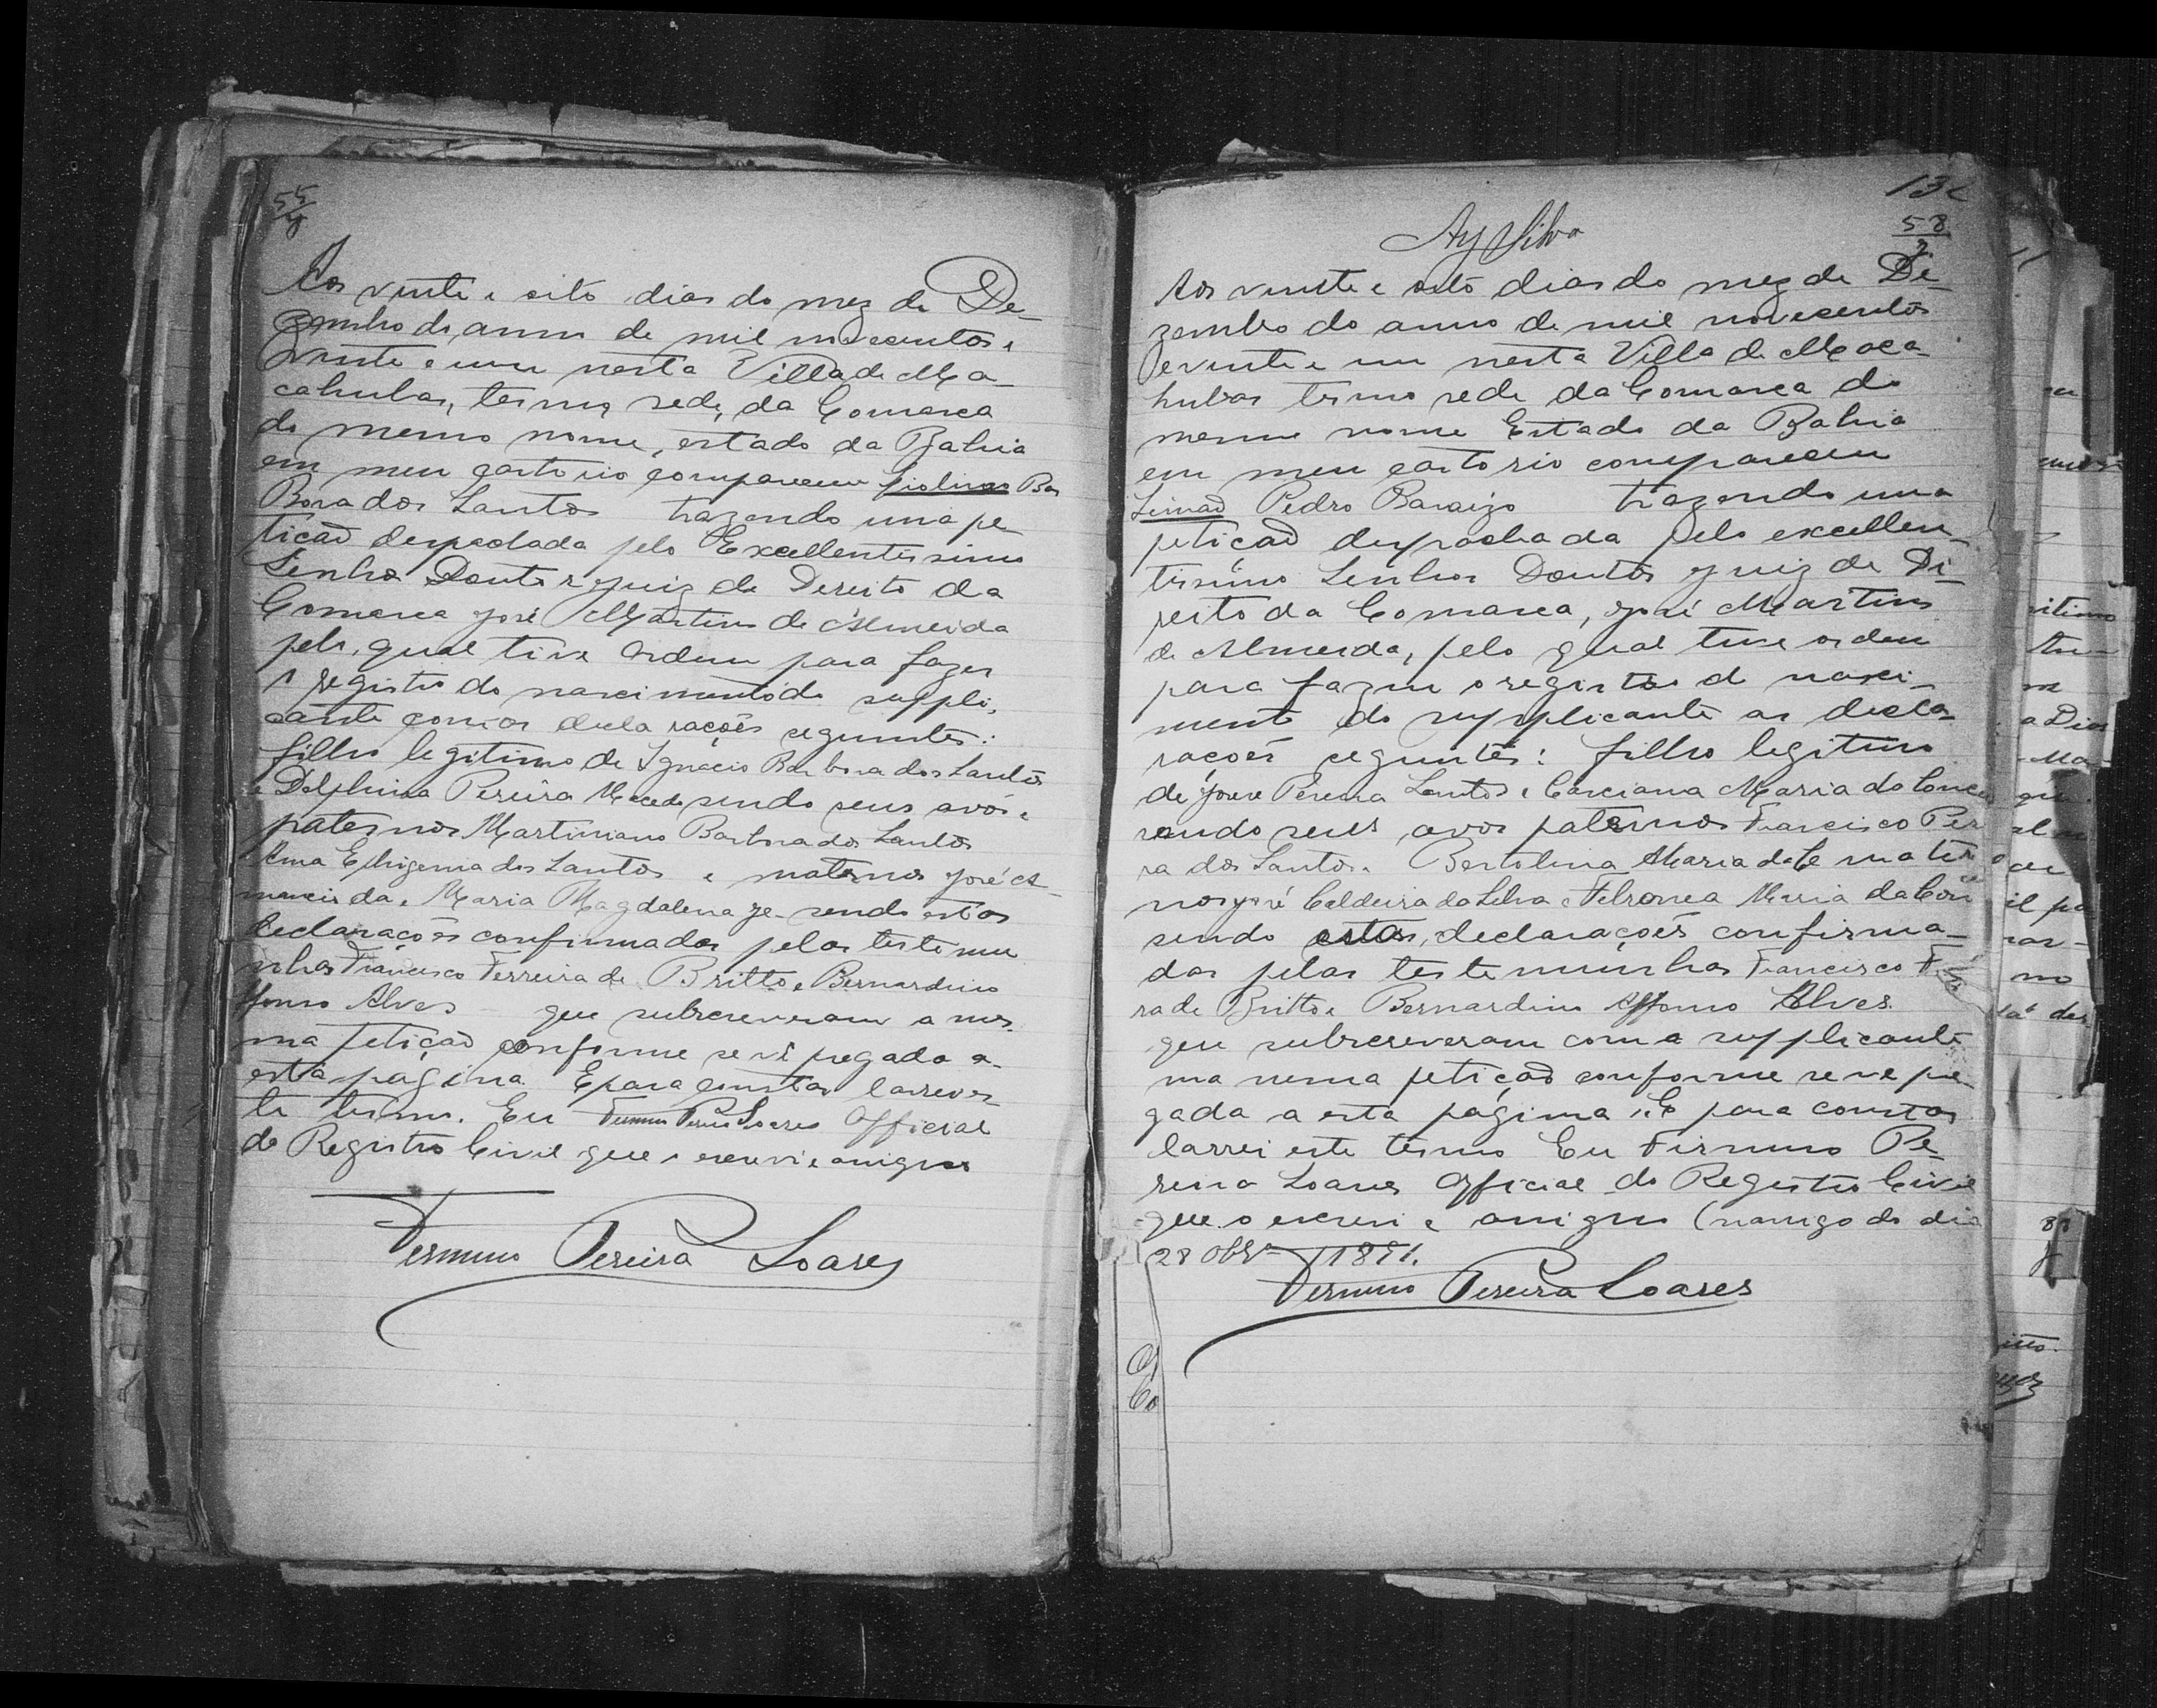 55
Aos vinte e oito dias do mez de De-
zembro do anno de mil novecentos e
vinte e um nesta Villa de Ma-
cahubas, termo sede, da Comarca
do mesmo nome, estado da Bahia
em meu cartorio compareceu Bar
Bosa dos Santos trazendo uma pe-
tição despachada pelo Excellentissimo
Senhor Doutor juiz de Dereito da
Comarca José Martins de Almeida
pelo qual tive ordem para fazer
o registro do nascimento do suppli-
cante com as declarações ceguintes:
filho legitimo de Ignacio Barbosa dos Santos
e Delphina Pereira sendo seus avós,
paternos Martiniano Barbosa dos Santos
Ana Ephigenia dos Santos e maternos José
Maria Magdalena sendo estas
declarações confirmadas pelas testemu
nhas Francisco Ferreira de Britto e Bernardino
Affonso Alves que subscreveram a mes
ma petição conforme se vê pregada a
esta pagina E para constar larrei es
te termo. Eu Firmino Pereira Soares Official
do Registro Civil que o escrevi e assigno
Firmino Pereira Soares
Ay Silva
58
Aos vinte e oito dias do mez de De-
zembro do anno de mil novecentos
e vinte e um nesta Villa de Maca-
hubas termo sede da Comarca do
mesmo nome Estado da Bahia
em meu cartorio compareceu
Pedro trazendo uma
petição despachada pelo excellen-
tissimo Senhor Doutor juiz de Di-
reito da Comarca, José Martins
de Almeida, pelo qual tive ordem
para fazer o registro de nasci-
mento do supplicante as decla-
rações ceguintes: filho legitimo
de Pereira Santos e Maria da
sendo seus avos paternos Francisco Perei
ra dos Santos e Bertolina Maria de mater
nos José Caldeira da Silva e Maria da Con
sendo estas, declarações confirma-
das pelas testemunhas Francisco
ra de Britto e Bernardino Affonso Alves
que subscreveram com a supplicante
na mesma petição conforme se ve pre-
gada a esta página. E para constar
larrei este termo Eu Firmino Pe-
reira Soares Official do Registro Civil
que o escrevi e assigno do dia
28
Firmino Pereira Soares